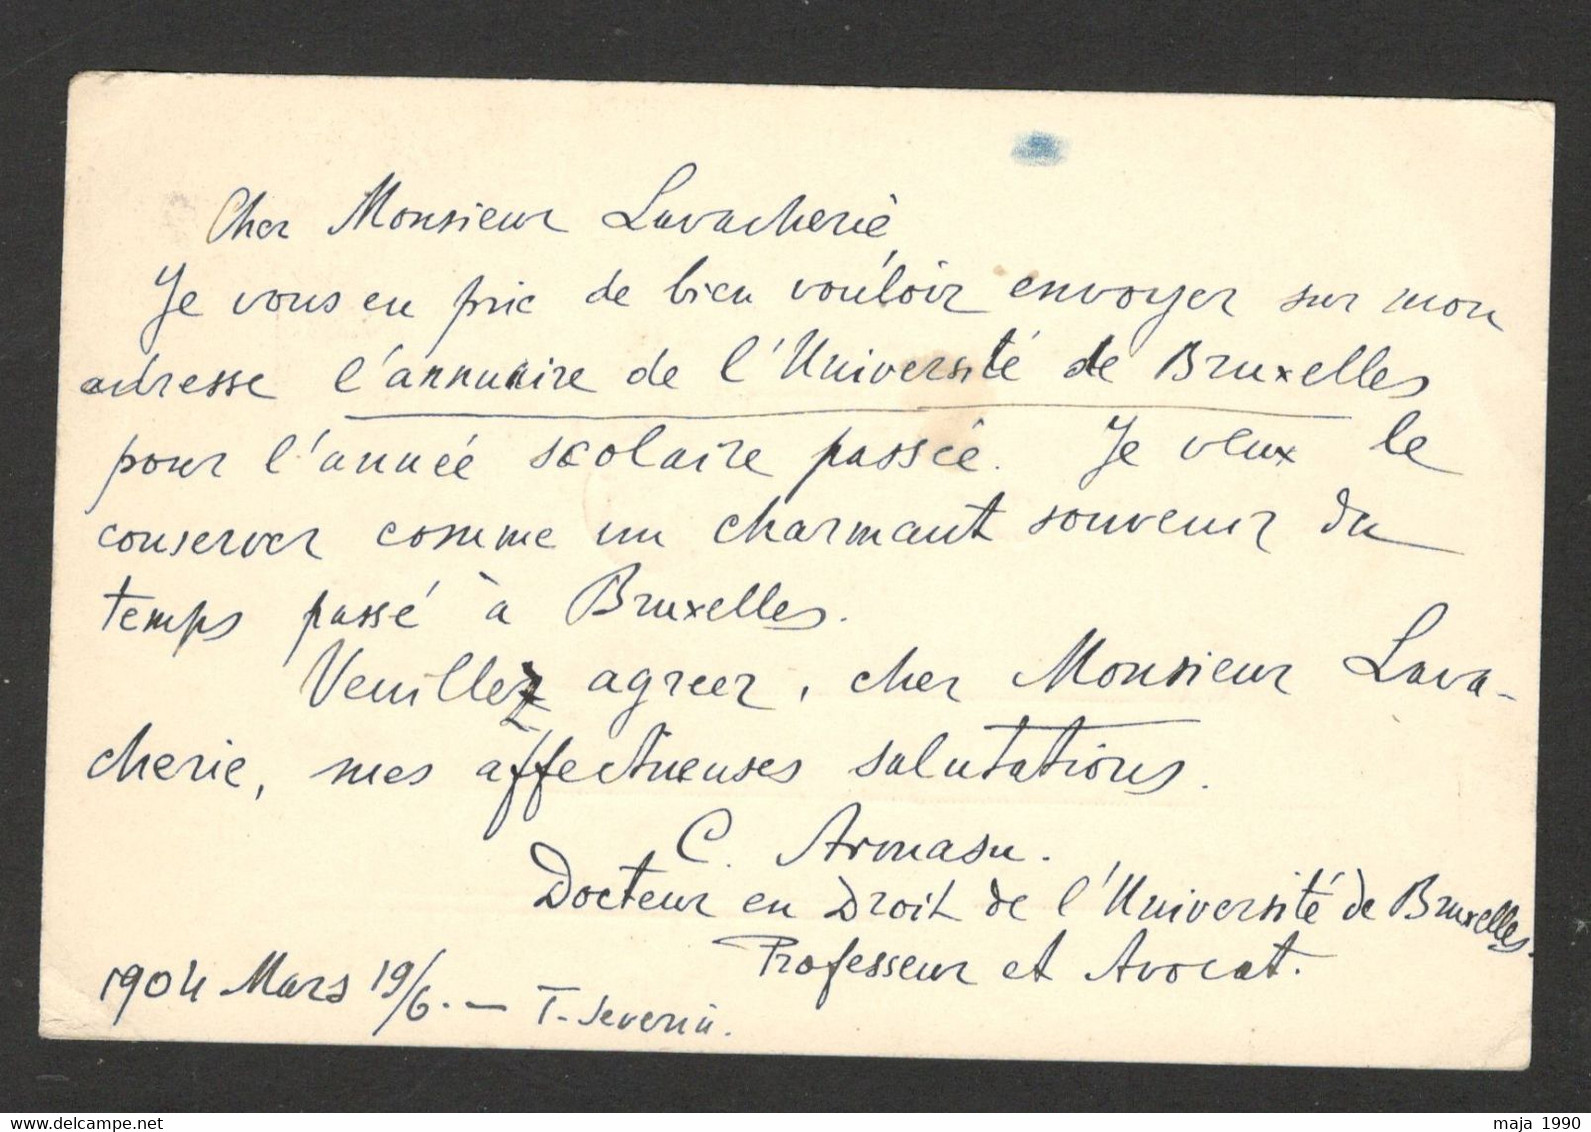 Cher Monsieur Lavacherie,
Je vous en prie de bien vouloir envoyer sur mon
adresse l'annuaire de l'Université de Bruxelles
pour l'année scolaire passée. Je veux le
conserver comme un charmant souvenir du
temps passé à Bruxelles.
Veuillez agreer, cher Monsieur Lava-
cherie, mes affectueuses salutations.
C. Armasu.
Docteur en Droit de l'Université de Bruxelles.
Professeur et Avocat.
1904 Mars 19/6. — T-Severin.
www.delcampe.net
maja 1990